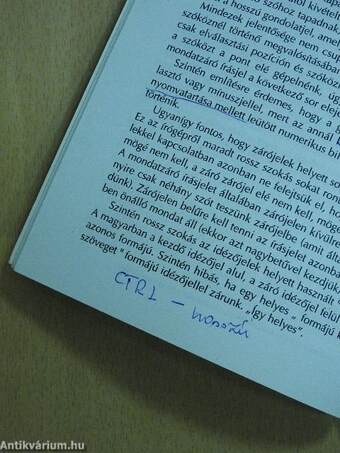 ról kivétel
a hosszú gondolatjel, amely szóhoz tapadnak
Mindezek jelentősége nem csupá
csak elválasztási pozíción és szóköz
szóköznél történő megvalósításában
a szóközt a pont elé gépelnénk. Ug
mondatzáró írásjel a következő sor elej
Szintén említésre érdemes, hogy a g
lasztó vagy mínuszjellel, mert az annál b
nyomvatartása mellett leütött numerikus bil
történik.
Ugyanígy fontos, hogy zárójelek helyett so
Ez az írógépről maradt rossz szokás sokat ron
lekkel kapcsolatban azonban ne felejtsük el, ho
mögé nem kell, a záró zárójel elé nem kell, mög
A mondatzáró írásjelet általában zárójelen kívülre
nyire csak néhány szót teszünk zárójelbe (amit álta
dünk). Zárójelen belülre kell tenni az írásjelet azonba
ben önálló mondat áll (ekkor azt nagybetűvel kezdjük
Szintén rossz szokás az idézőjelek helyett használt "
A magyarban a kezdő idézőjel alul, a záró idézőjel felül
azonos formájú. Szintén hibás, ha egy helyes " formájú k
szöveget " formájú idézőjellel zárunk. „Így helyes".
CTRL –
Antikvárium.hu